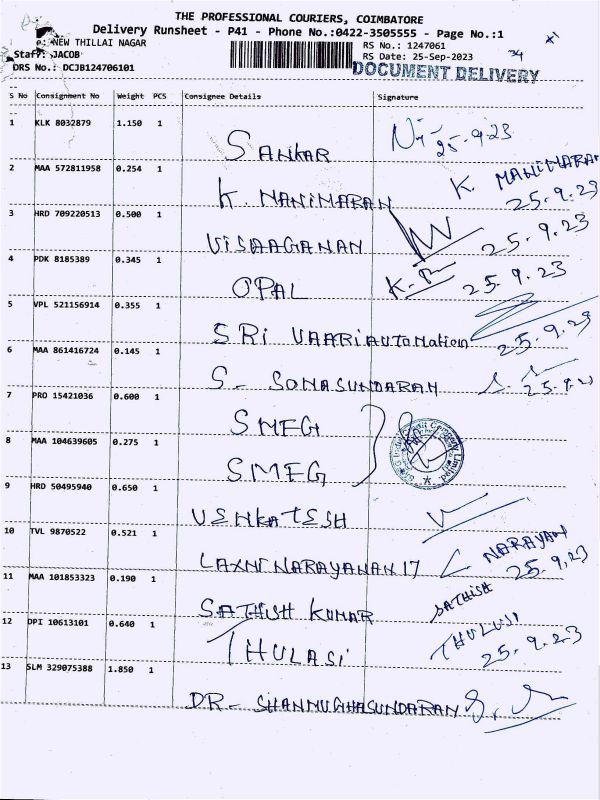 THE PROFESSIONAL COURIERS, COIMBATORE
Delivery Runsheet - P41 - Phone No.:0422-3505555 - Page No.:1
NEW THILLAI NAGAR
RS No.: 1247061
Staff: JACOB
RS Date: 25-Sep-2023
34
DRS No.: DCJB124706101
DOCUMENT DELIVERY
S No Consignment No Weight PCS Consignee Details Signature
1 KLK 8032879 1.150 1 SANKAR 25-9.23
2 MAA 572811958 0.254 1 K. MANIMARAN K. MANIMARAN 25.9.23
3 HRD 709220513 0.500 1 VISAAGANAN 25.9.23
4 PDK 8185389 0.345 1 OPAL 25.9.23
5 VPL 521156914 0.355 1 SRI VAARI AUTOMATION 25.9.23
6 MAA 861416724 0.145 1 S- SOMASUNDARAM 25.9.23
7 PRO 15421036 0.600 1 SMEG
8 MAA 104639605 0.275 1 SMEG
9 HRD 50495940 0.650 1 VENKATESH
10 TVL 9870522 0.521 1 LAXMI NARAYANAN 17 L NARAYAN 25.9.23
11 MAA 101853323 0.190 1 SATHISH KUMAR SATHISH
12 DPI 10613101 0.640 1 THULASI THULUSI 25.9.23
13 SLM 329075388 1.850 1 DR- SHANMUGHASUNDARAN